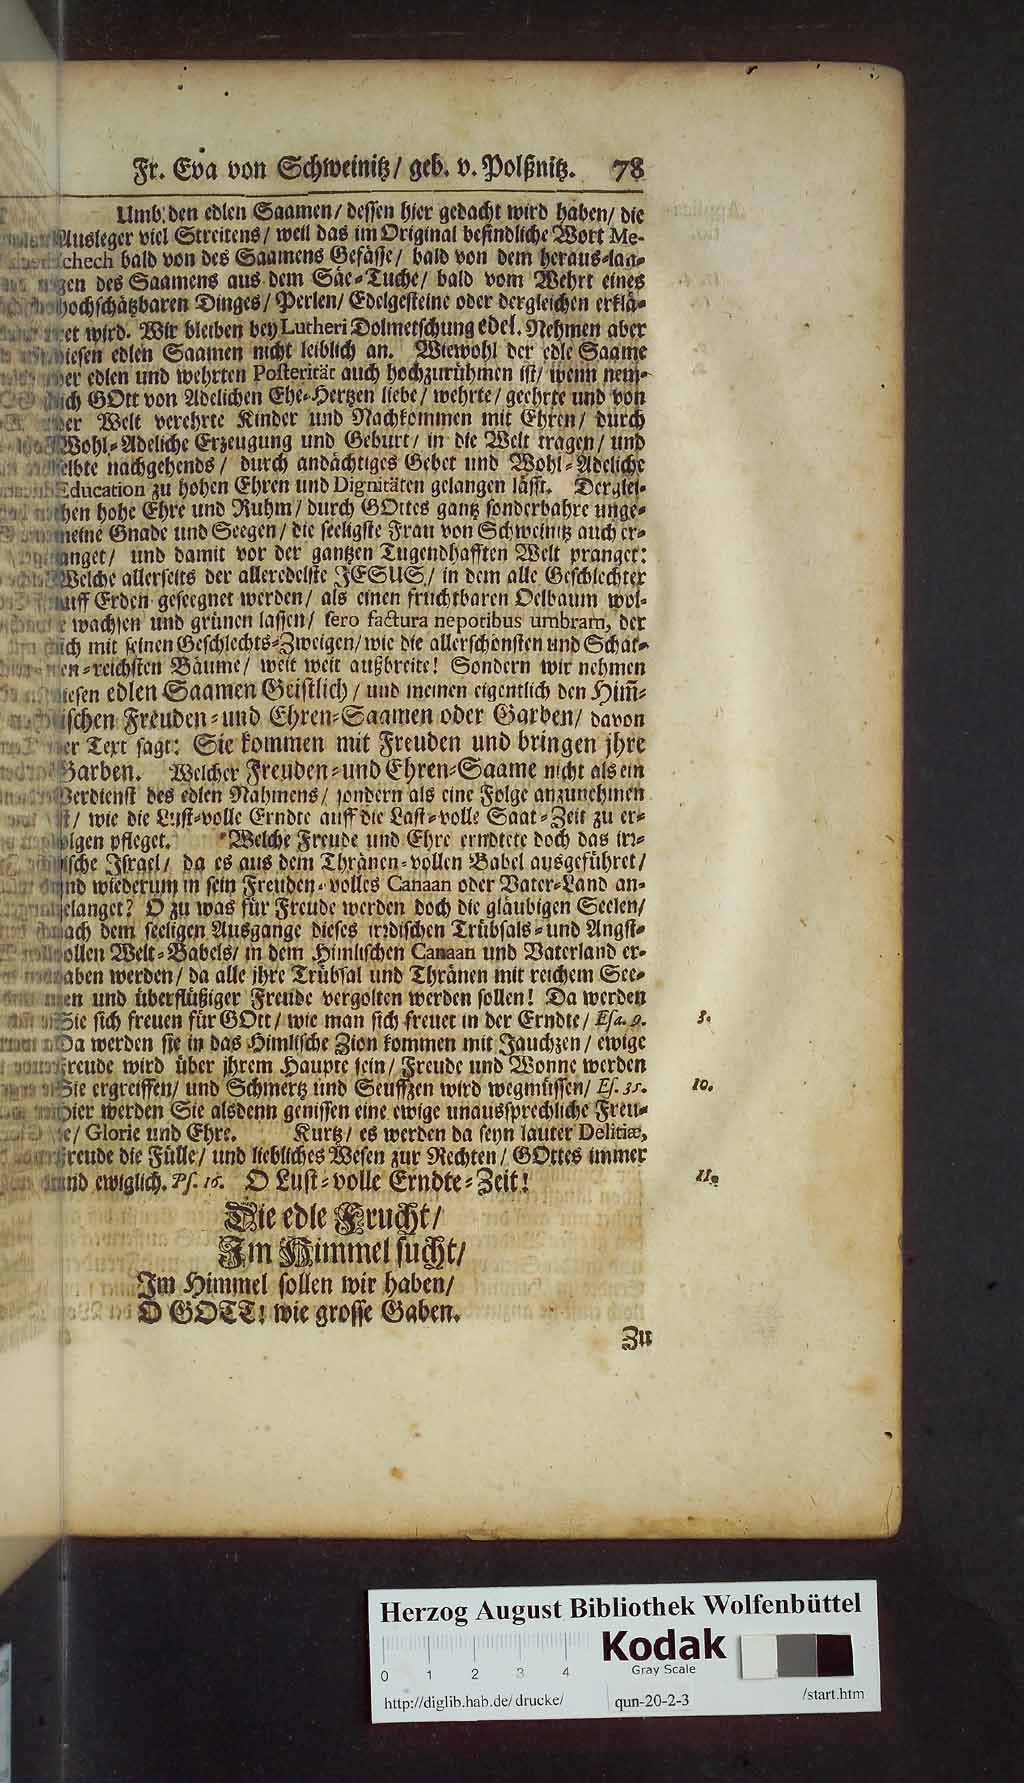 Fr. Eva von Schweinitz/ geb. v. Polßnitz. 78
Umb den edlen Saamen/ dessen hier gedacht wird haben/ die
Ausleger viel Streitens/ weil das im Original befindliche Wort Me-
schech bald von des Saamens Gefässe/ bald von dem heraus-lan-
gen des Saamens aus dem Säe-Tuche/ bald vom Wehrt eines
hochschätzbaren Dinges/ Perlen/ Edelgesteine oder dergleichen erklä-
ret wird. Wir bleiben bey Lutheri Dolmetschung edel. Nehmen aber
diesen edlen Saamen nicht leiblich an. Wiewohl der edle Saame
der edlen und wehrten Posterität auch hochzurühmen ist/ wenn nem-
lich GOtt von Adelichen Ehe-Hertzen liebe/ wehrte/ geehrte und von
der Welt verehrte Kinder und Nachkommen mit Ehren/ durch
Wohl-Adeliche Erzeugung und Geburt/ in die Welt tragen/ und
selbte nachgehends/ durch andächtiges Gebet und Wohl-Adeliche
Education zu hohen Ehren und Dignitäten gelangen lässt. Derglei-
chen hohe Ehre und Ruhm/ durch GOttes gantz sonderbahre unge-
meine Gnade und Seegen/ die seeligste Frau von Schweinitz auch er-
langet/ und damit vor der gantzen Tugendhafften Welt pranget:
Welche allerseits der alleredelste JESUS/ in dem alle Geschlechter
auff Erden geseegnet werden/ als einen fruchtbaren Oelbaum wol-
le wachsen und grünen lassen/ sero factura nepotibus umbram, der
sich mit seinen Geschlechts-Zweigen/ wie die allerschönsten und Schat-
ten-reichsten Bäume/ weit weit außbreite! Sondern wir nehmen
diesen edlen Saamen Geistlich/ und meinen eigentlich den Him̄-
lischen Freuden-und Ehren-Saamen oder Garben/ davon
der Text sagt: Sie kommen mit Freuden und bringen jhre
Garben. Welcher Freuden-und Ehren-Saame nicht als ein
Verdienst des edlen Nahmens/ sondern als eine Folge anzunehmen
ist/ wie die Lust-volle Erndte auff die Last-volle Saat-Zeit zu er-
folgen pfleget. Welche Freude und Ehre erndtete doch das irr-
dische Israel/ da es aus dem Thränen-vollen Babel ausgeführet/
und wiederum in sein Freuden-volles Canaan oder Vater-Land an-
gelanget? O zu was für Freude werden doch die gläubigen Seelen/
nach dem seeligen Ausgange dieses irrdischen Trübsals-und Angst-
vollen Welt-Babels/ in dem Himlischen Canaan und Vaterland er-
haben werden/ da alle jhre Trübsal und Thränen mit reichem See-
gen und überflüßiger Freude vergolten werden sollen! Da werden
Sie sich freuen für GOtt/ wie man sich freuet in der Erndte/ Esa. 9. 3.
Da werden sie in das Himlische Zion kommen mit Jauchzen/ ewige
Freude wird über jhrem Haupte sein/ Freude und Wonne werden
Sie ergreiffen/ und Schmertz und Seuffzen wird wegmüssen/ Es. 35. 10.
Hier werden Sie alsdenn genissen eine ewige unaussprechliche Freu-
de/ Glorie und Ehre. Kurtz/ es werden da seyn lauter Delitiæ,
Freude die Fülle/ und liebliches Wesen zur Rechten/ GOttes immer
und ewiglich. Ps. 16. O Lust-volle Erndte-Zeit! 11.
Die edle Frucht/
Im Himmel sucht/
Im Himmel sollen wir haben/
O GOTT! wie grosse Gaben.
Zu
Herzog August Bibliothek Wolfenbüttel
Kodak
Gray Scale
0 1 2 3 4
http://diglib.hab.de/drucke/ qun-20-2-3 /start.htm